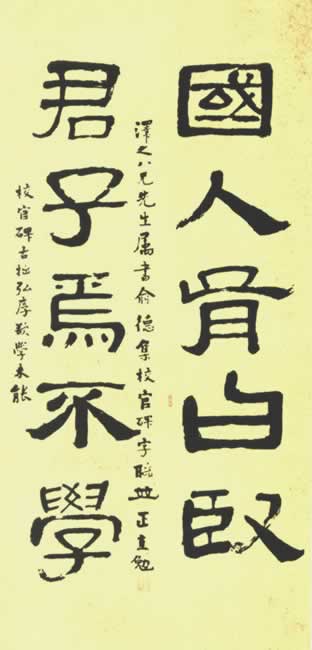 國人胥曰臤
澤之八兄先生屬書俞德集校官碑字聯並正直勉
君子焉不學
校官碑古拙弘厚欲學未能